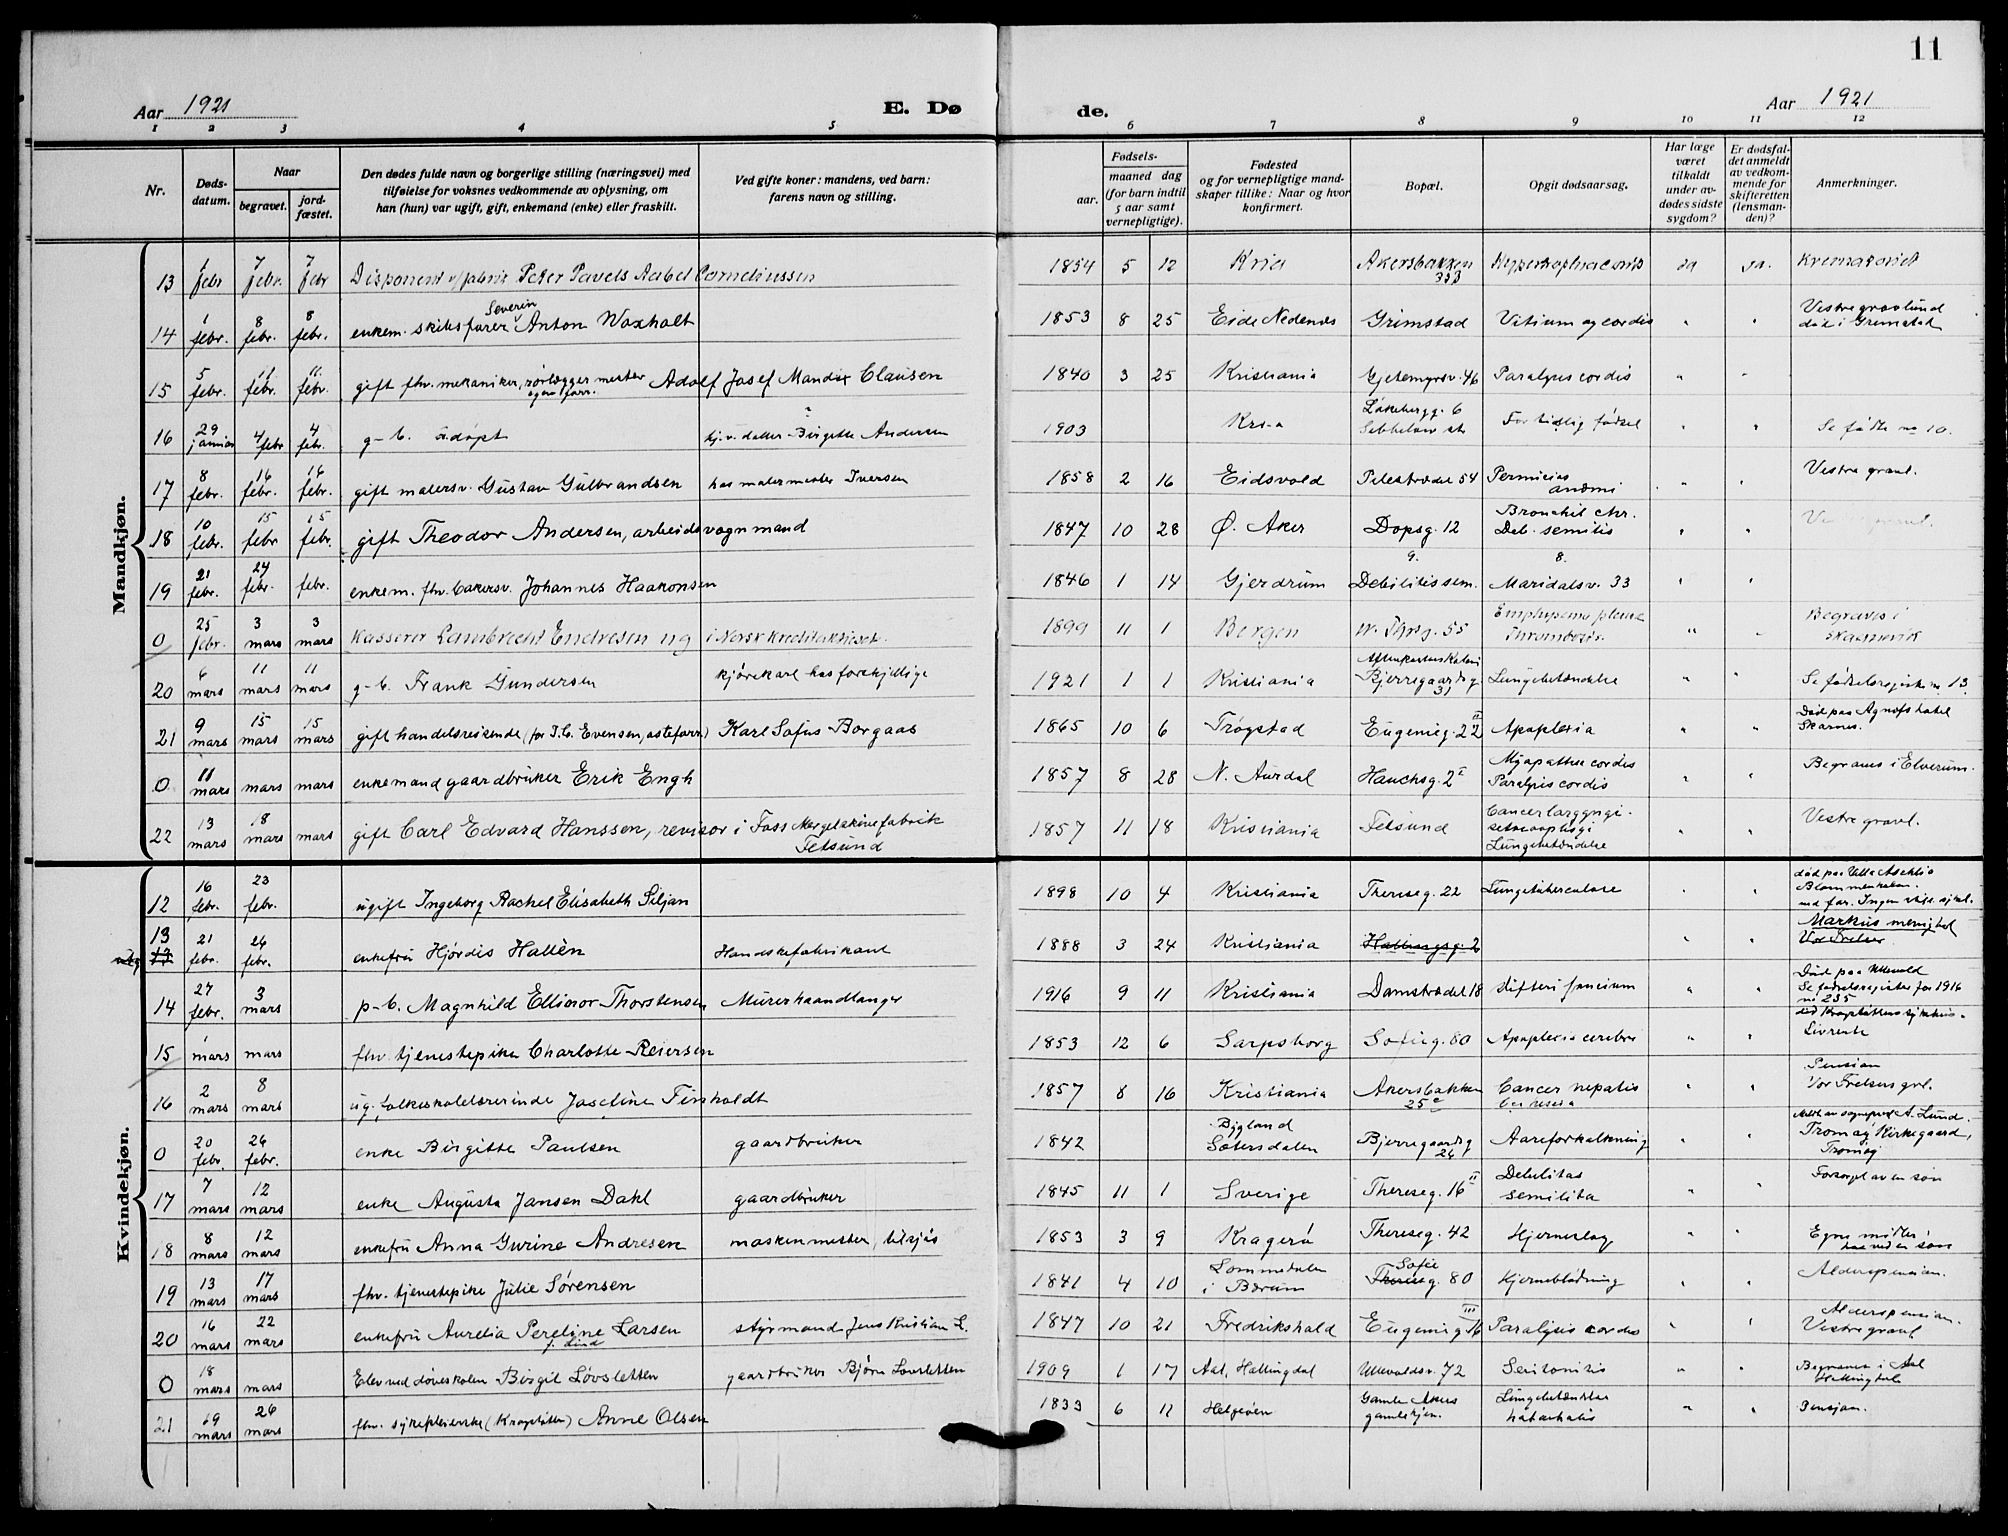 11
Aar 1921
E. Dø
de.
Aar 1921
1 2 3 4 5 6 7 8 9 10 11 12
Nr.
Døds-
datum.
Naar
begravet.
jord-
fæstet.
Den dødes fulde navn og borgerlige stilling (næringsvei) med
tilføielse for voksnes vedkommende av oplysning, om
han (hun) var ugift, gift, enkemand (enke) eller fraskilt.
Ved gifte koner: mandens, ved barn:
farens navn og stilling.
Fødsels-
aar.
maaned dag
(for barn indtil
5 aar samt
vernepligtige).
Fødested
og for vernepligtige mand-
skaper tillike: Naar og hvor
konfirmert.
Bopæl.
Opgit dødsaarsag.
Har læge
været
tilkaldt
under av-
dødes sidste
sygdom?
Er dødsfal-
det anmeldt
av vedkom-
mende for
skifteretten
(lensman-
den)?
Anmerkninger.
Mandkjøn.
13 1 febr 7 febr. 7 febr Disponent Peter Pavels Aabel Corneliussen 1854 5 12 Kria Akersbakken 33 ja ja. Krematoriet
14 1 febr. 8 febr. 8 febr. enkem. skibsfører Severin Anton Woxholt 1853 8 25 Eide Nedenes Grimstad Vitium cordis " " Vestre gravlund død i Grimstad
15 5 febr. 11 febr. 11 febr. gift fhv. mekaniker, rørlægger mester Adolf Josef Clausen 1840 3 25 Kristiania Gjetemyrsv. 46 Paralysis cordis " "
16 29 januar 4 febr 4 febr. g-b. udøpt Birgitte Andersen 1903 Kr.a For tidlig fødsel " " Se fødte no 10.
17 8 febr. 16 febr. 16 febr. gift malersv. Gustav Gulbrandsen hos malermester Iversen 1858 2 16 Eidsvold Pilestrædet 54 Pernicios anæmi " " Vestre gravl.
18 10 febr. 15 febr 15 febr. gift Theodor Andersen, arbeidsvognmand 1847 10 28 Ø. Aker Dopsg. 12 Bronchit chr. Deb. semilis " "
19 21 febr. 24 febr. febr. enkem. fhv. bakersv. Johannes Haakonsen 1846 1 14 Gjerdrum 9. Debilitis sem. 8. Maridalsv. 33 " "
0 25 febr. 3 mars 3 mars Kasserer Lambrecht Endresen ug i Norsk 1899 11 1 Bergen 55 " " Begraves i
20 6 mars 11 mars 11 mars g-b. Frank Gundersen kjørekarl hos forskjellige 1921 1 1 Kristiania Bjerregaardsg. 31 Lungebetændelse " " 13
21 9 mars 15 mars 15 mars gift handelsreisende (for Evensen, ostefor.) Karl Sofus Borgaas 1865 10 6 Trøgstad Eugenieg. 22 II Apoplexia " " Død paa hotel Skarnes.
0 11 mars mars mars enkemand gaardbruker Erik Engh 1857 8 28 N. Aurdal Hauchsg. 2 I Myopathia cordis Paralysis cordis " " Begraves i Elverum.
22 13 mars 18 mars mars gift Carl Edvard Hanssen, revisor i Foss fabrik Fetsund 1857 11 18 Kristiania Fetsund Cancer Lungebetændelse " " Vestre gravl.
Kvindekjøn.
12 16 febr. 23 febr. ugift Ingeborg Rachel Elisabeth Siljan 1898 10 4 Kristiania Thereseg. 22 Lungetuberculose " "
13 21 febr. 26 febr. enkefru Hjørdis Hallèn Handskefabrikant 1888 3 24 Kristiania " " Markus menighet Vor Frelser
14 27 febr. 3 mars p-b. Magnhild Ellinor Thorstensen Murerhaandlanger 1916 9 11 Kristiania Damstrædet 18 difteri faucium " " Død paa Ullevold Se fødselsregister for 1916 no 235
15 1 mars mars fhv. tjenestepike Charlotte Reiersen 1853 12 6 Sarpsborg Sofieg. 80 Apoplexia cerebri " " Livrente
16 2 mars 8 mars ug. folkeskolelærerinde Josefine Finholdt 1857 8 16 Kristiania Akersbakken 25 c Cancer hepatis " " Pension Vor Frelsers grl.
0 20 febr. 26 febr. enke Birgitte Paulsen gaardbruker 1842 Bygland Sætersdalen Bjerregaardsg 24 Aareforkalkning " " Tromøy Kirkegaard, Tromøy
17 7 mars 12 mars enke Augusta Jansen Dahl gaardbruker 1845 11 1 Sverige Thereseg. 16 II Debilitas semilita " " Forsørget av en søn
18 8 mars 12 mars enkefru Anna Gurine Andresen maskinmester tilsjøs 1853 3 9 Kragerø Thereseg. 42 Hjerneslag " " Egne midler
19 13 mars 17 mars fhv. tjenestepike Julie Sørensen 1841 4 10 Lommedalen i Bærum Sofie Thereseg. 80 Hjerneblødning " " Alderspension.
20 16 mars 22 mars enkefru Aurelia Pereline Larsen f. Lind styrmand Jens Kristian L. 1847 10 21 Fredrikshald Eugenieg 16 III Paralysis cordis " " Alderspension. Vestre gravl.
0 18 mars mars Elev ved døveskolen Birgit Løvsletten gaardbruker Bjørn Løvsletten 1909 1 17 Aal, Hallingdal Ullevoldsv. 72 " " Begraves i Aal Hallingdal
21 19 mars 26 mars fhv. sykepleierske (Krohgstøtten) Anne Olsen 1833 6 11 Helgeøen Gamle Akers gamlehjem. Lungebetændelse " " Pensjon.